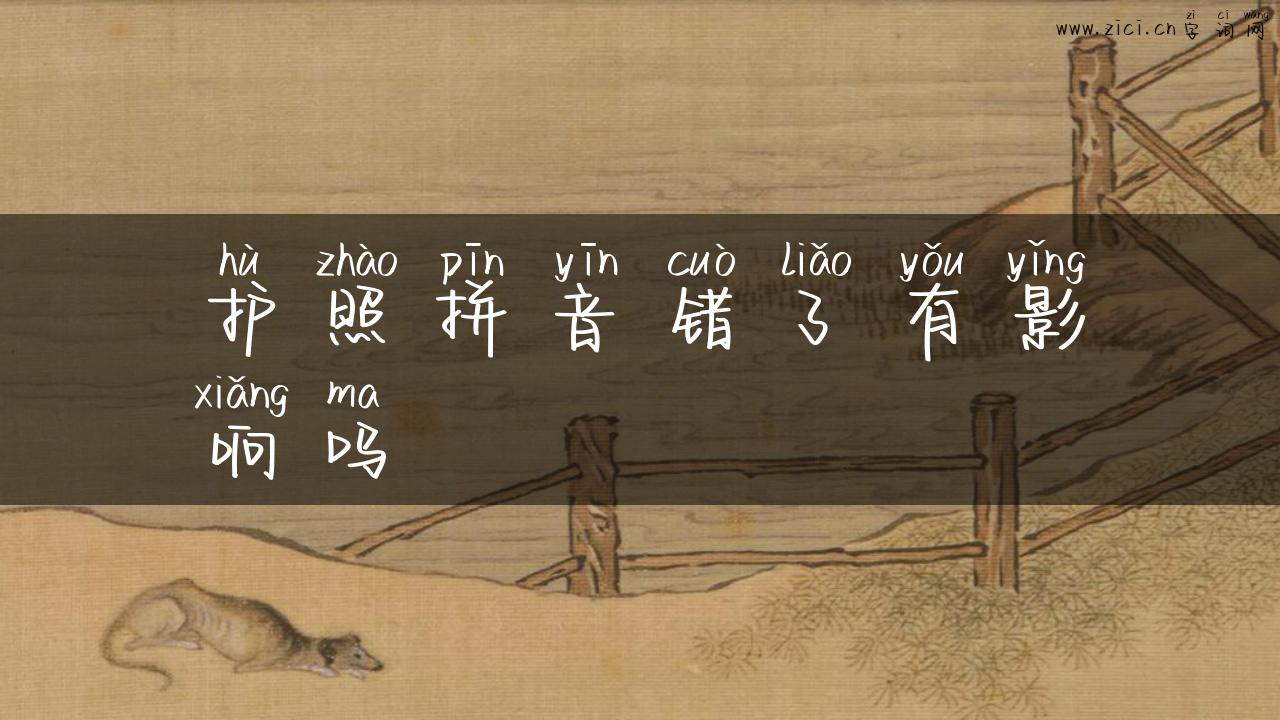 zi ci wang
www.zici.cn字词网
hù zhào pīn yīn cuò liǎo yǒu yǐng
护照拼音错了有影
xiǎng ma
响吗